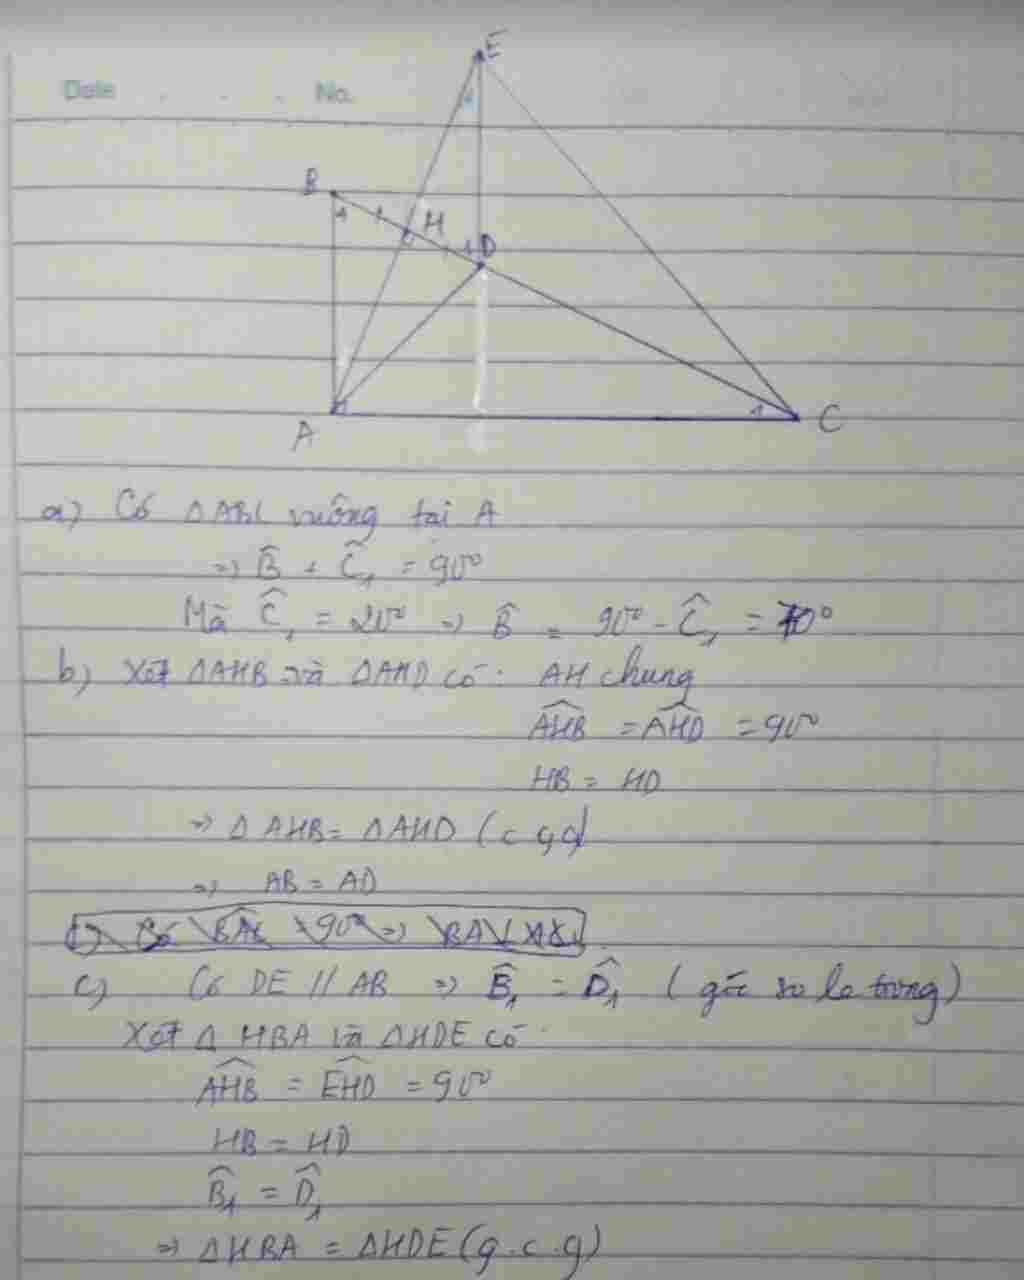 Date No.
E
B
1
1 H
1 D
A
1 C
a) Có ΔABC vuông tại A
=> B̂ + Ĉ₁ = 90°
Mà Ĉ₁ = 20° => B̂ = 90° - Ĉ₁ = 70°
b) Xét ΔAHB và ΔAHD có: AH chung
AHB = AHD = 90°
HB = HD
=> ΔAHB = ΔAHD (c g c)
=> AB = AD
c) Có BAC = 90° => BA ⊥ AC
c) Có DE // AB => B̂₁ = D̂₁ (góc so le trong)
Xét Δ HBA và ΔHDE có
AHB = EHD = 90°
HB = HD
B̂₁ = D̂₁
=> ΔHBA = ΔHDE (g.c.g)